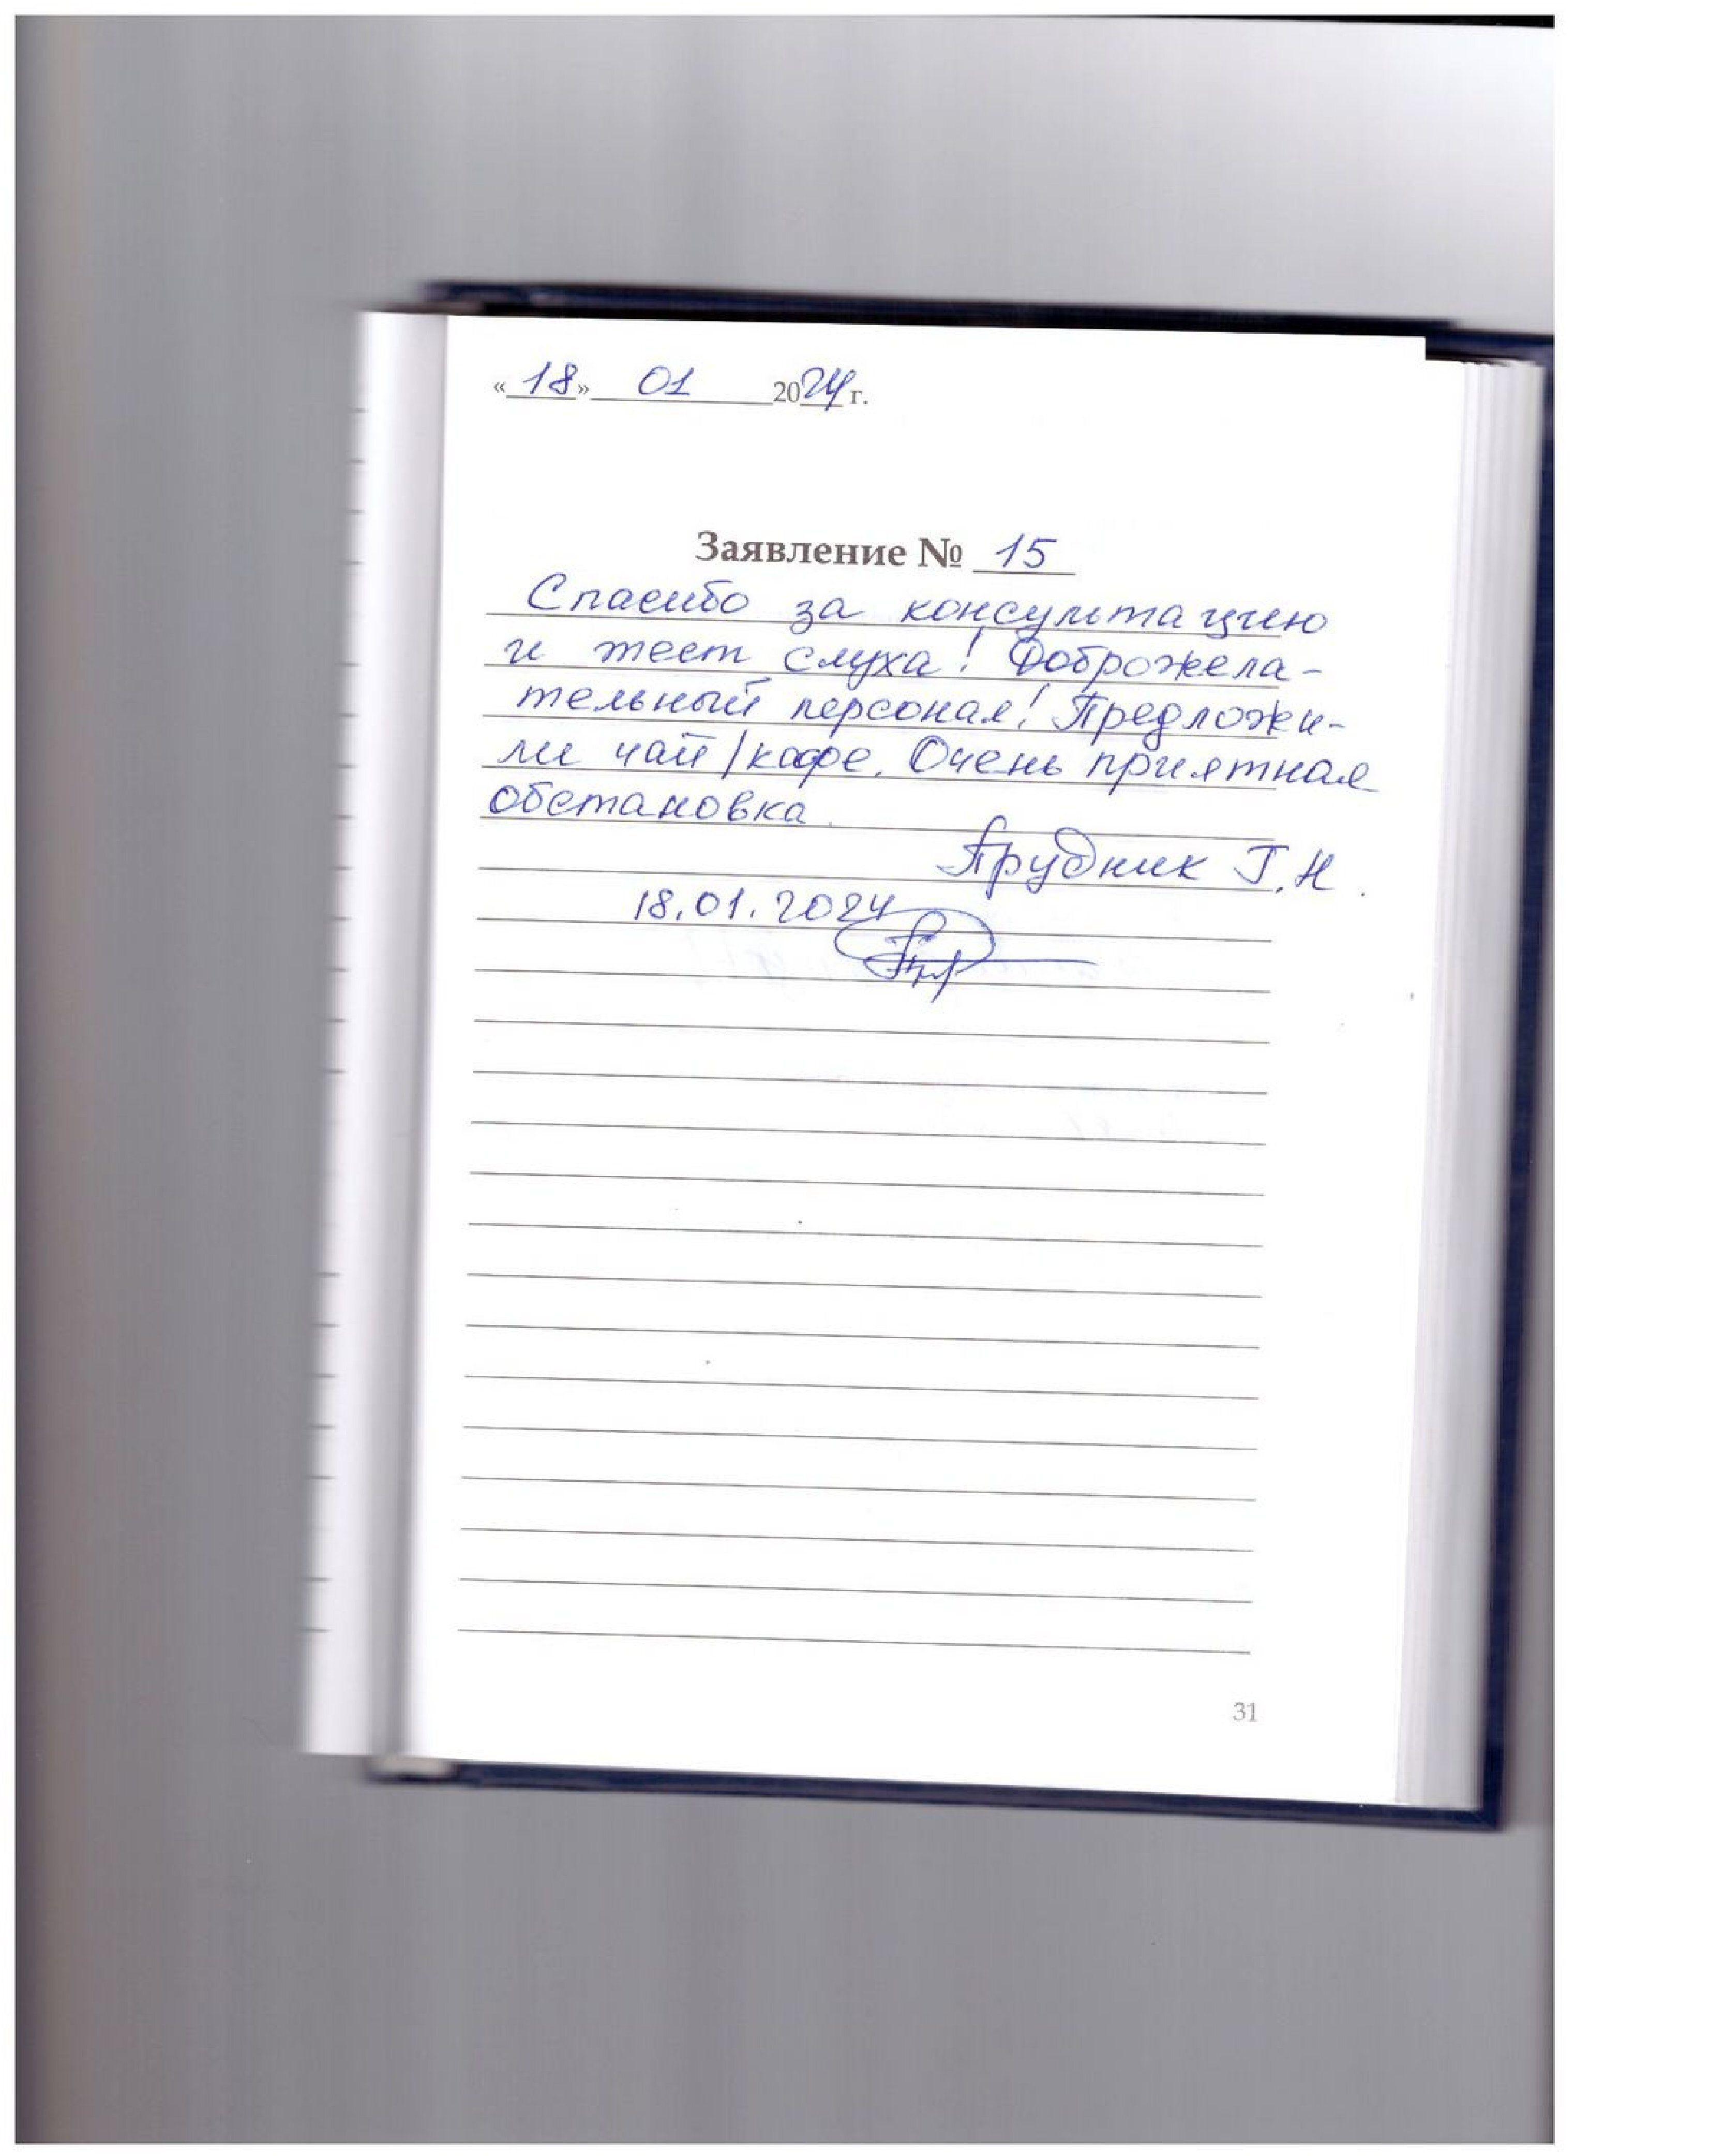 «18» 01 2024 г.
Заявление № 15
Спасибо за консультацию
и тест слуха! Доброжела-
тельный персонал! Предложи-
ли чай/кофе. Очень приятная
обстановка.
Прудник Г.Н.
18.01.2024
31